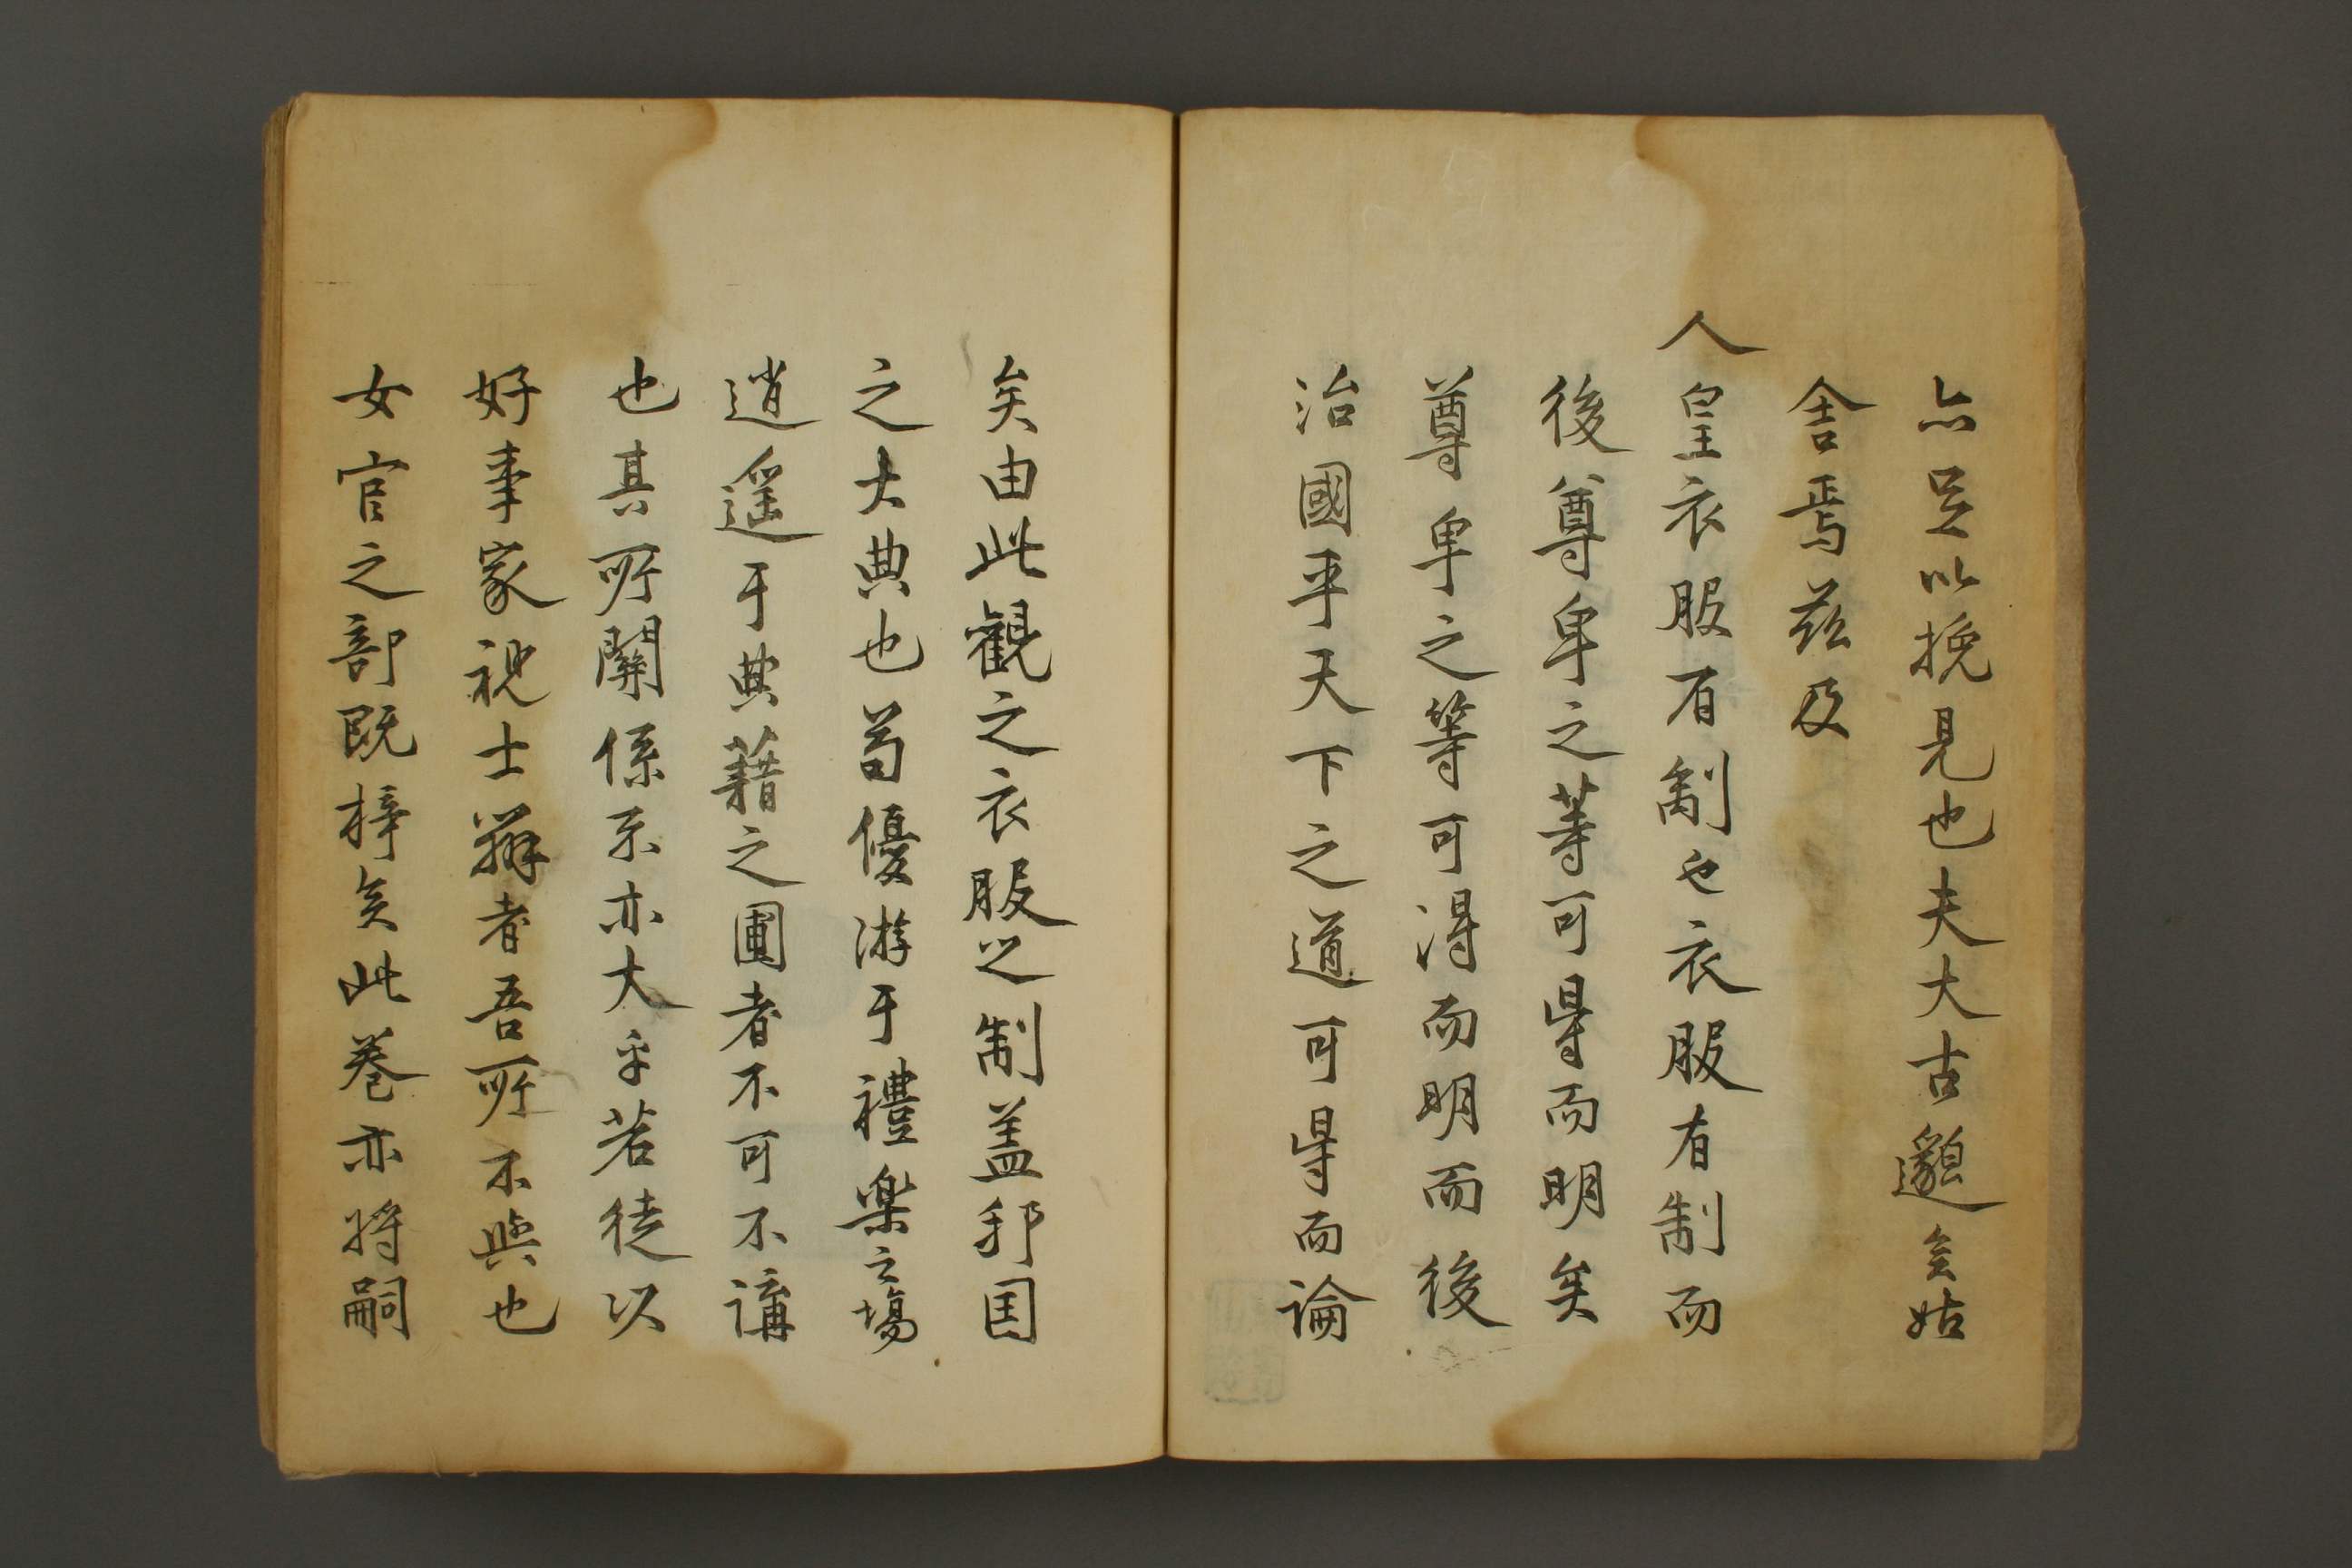 亦足以挽見也夫大古邈矣姑
舎焉茲及
人皇衣服有制也衣服有制而
後尊卑之等可得而明矣
尊卑之等可得而明而後
治國平天下之道可得而論
矣由此觀之衣服之制盖邦国
之大典也苟優游于禮樂之場
逍遥于典藉之圃者不可不講
也其所關係不亦大乎若徒以
好事家視士辯者吾所不與也
女官之部既梓矣此巻亦将嗣